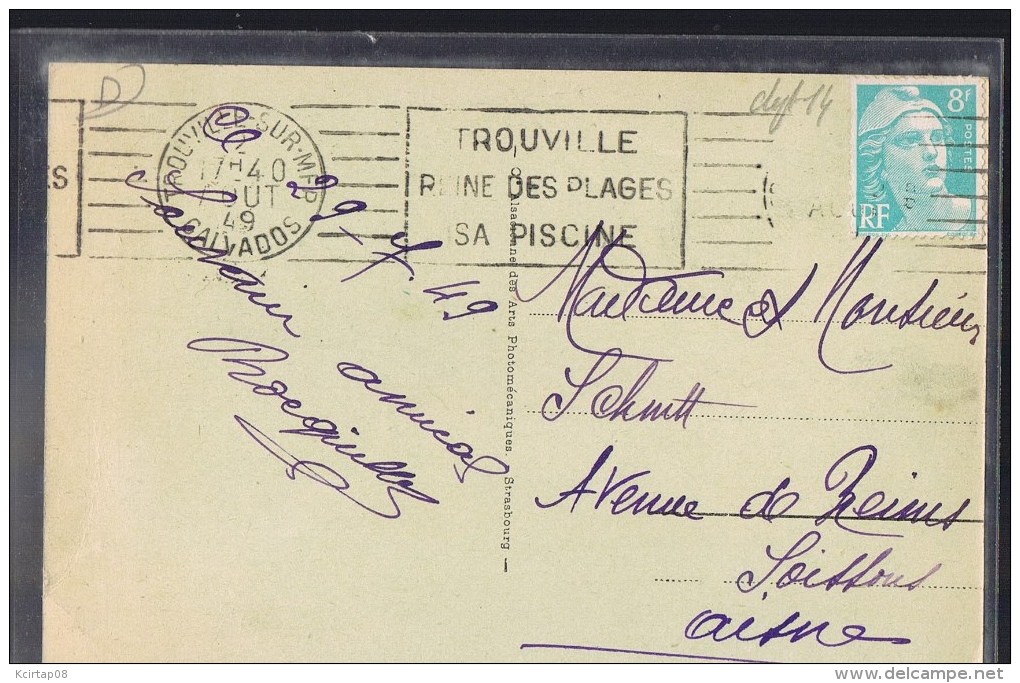 D
dept 14
TROUVILLE-SUR-MER
17H40
OUT
49
CALVADOS
ES
TROUVILLE
REINE DES PLAGES
SA PISCINE
8f
POSTES
RF
Le 29-X-49
Souvenir amical
Alsacienne des Arts Photomécaniques. Strasbourg
Madame et Monsieur
Schmitt
Avenue de Reims
Soissons
Aisne
Kcirtap08
www.delcampe.net